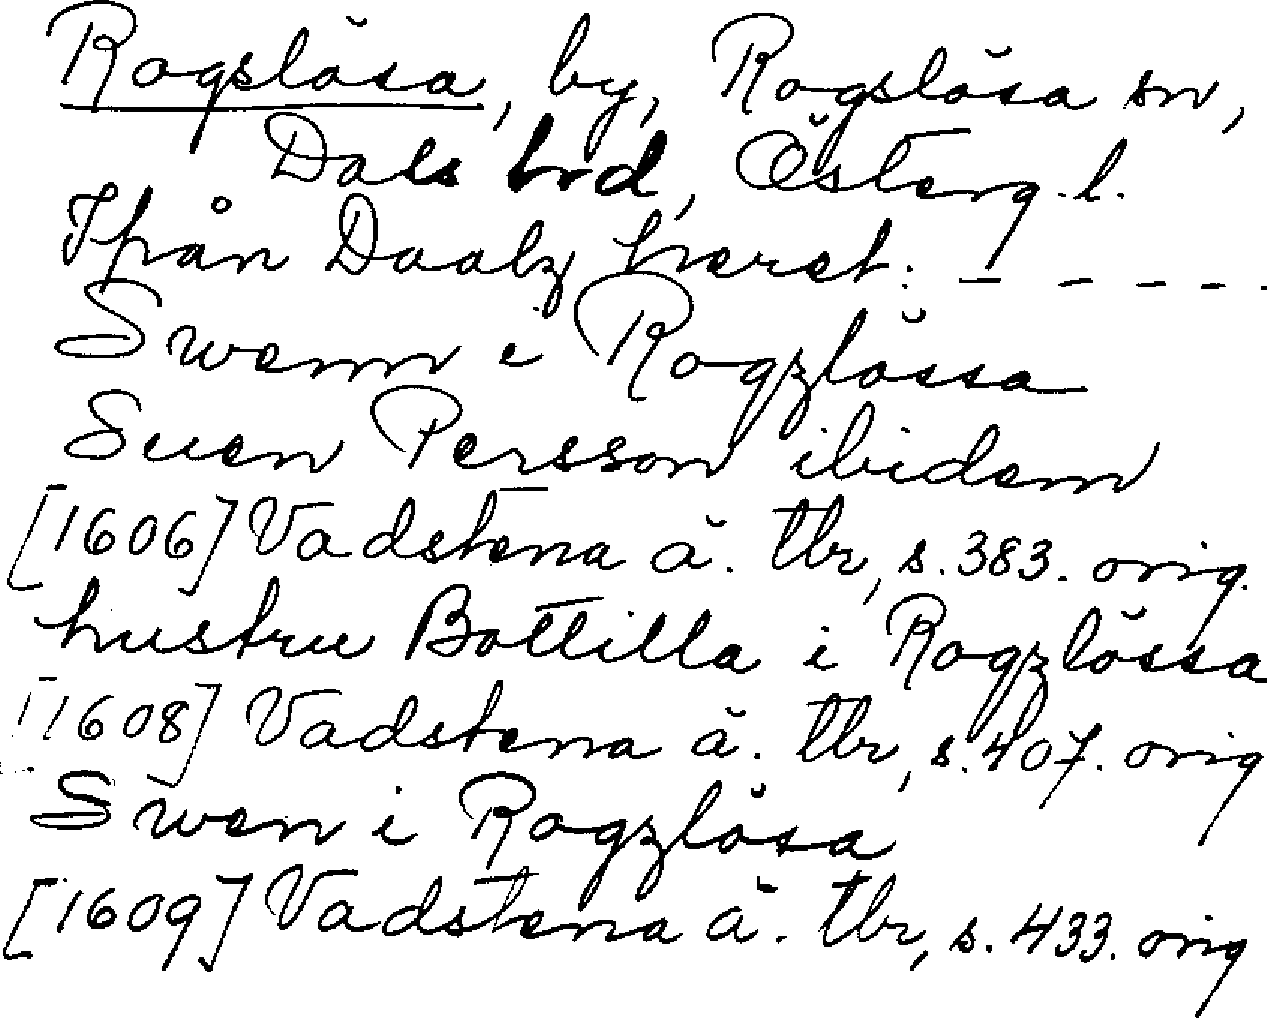 Rogslösa, by, Rogslösa sn,
Dals hrd, Österg.l.
Ifrån Daalz heret: - - - - -
Swenn i Rogzlössa
Suen Persson ibidem
[1606] Vadstena ä. tbr, s. 383. orig.
hustru Bottilla i Rogzlössa
[1608] Vadstena ä. tbr, s. 407. orig
Swen i Rogzlösa
[1609] Vadstena ä. tbr, s. 433. orig